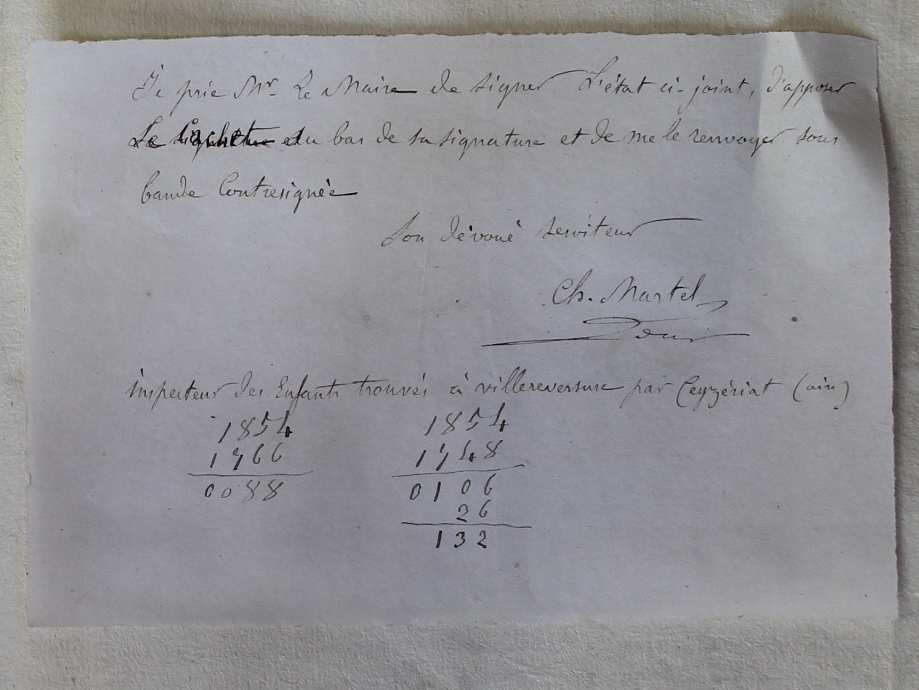 Je prie Mr. Le Maire de signer L'état ci-joint, d'apposer
Le Cachet au bas de sa signature et de me le renvoyer sous
bande Contresignée
Son dévoué serviteur
Ch. Martel
inspecteur des Enfants trouvés à villereversure par Ceyzériat (ain)
1854 1854
1766 1748
0088 0106
26
132